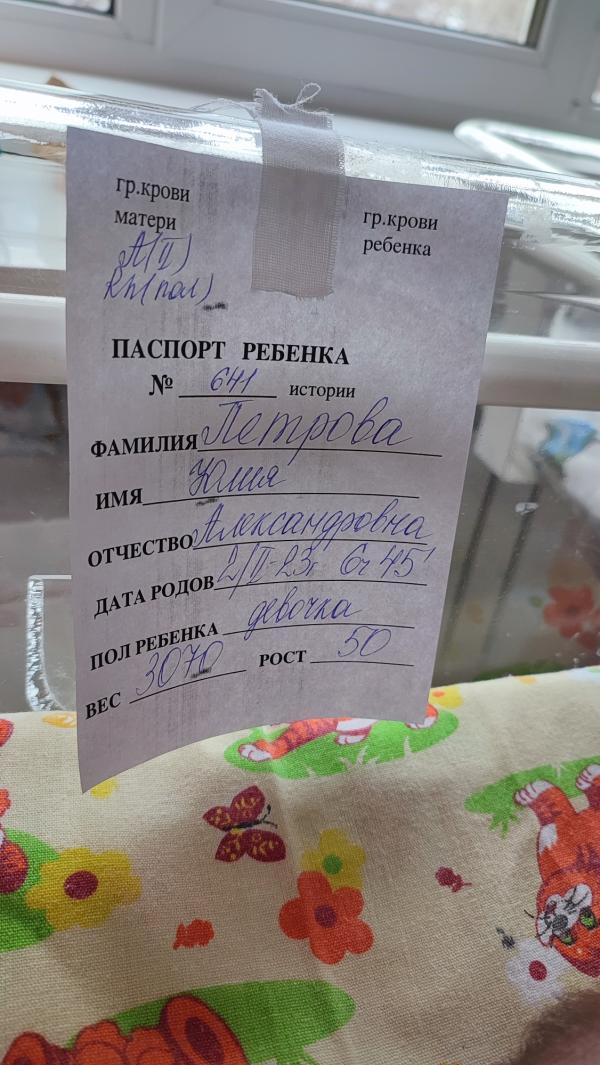 гр.крови
матери
гр.крови
ребенка
A(II)
Rh(пол)
ПАСПОРТ РЕБЕНКА
№ 641 истории
ФАМИЛИЯ Петрова
ИМЯ Юлия
ОТЧЕСТВО Александровна
ДАТА РОДОВ 2/II-23г 6ч 45'
ПОЛ РЕБЕНКА девочка
ВЕС 3070 РОСТ 50